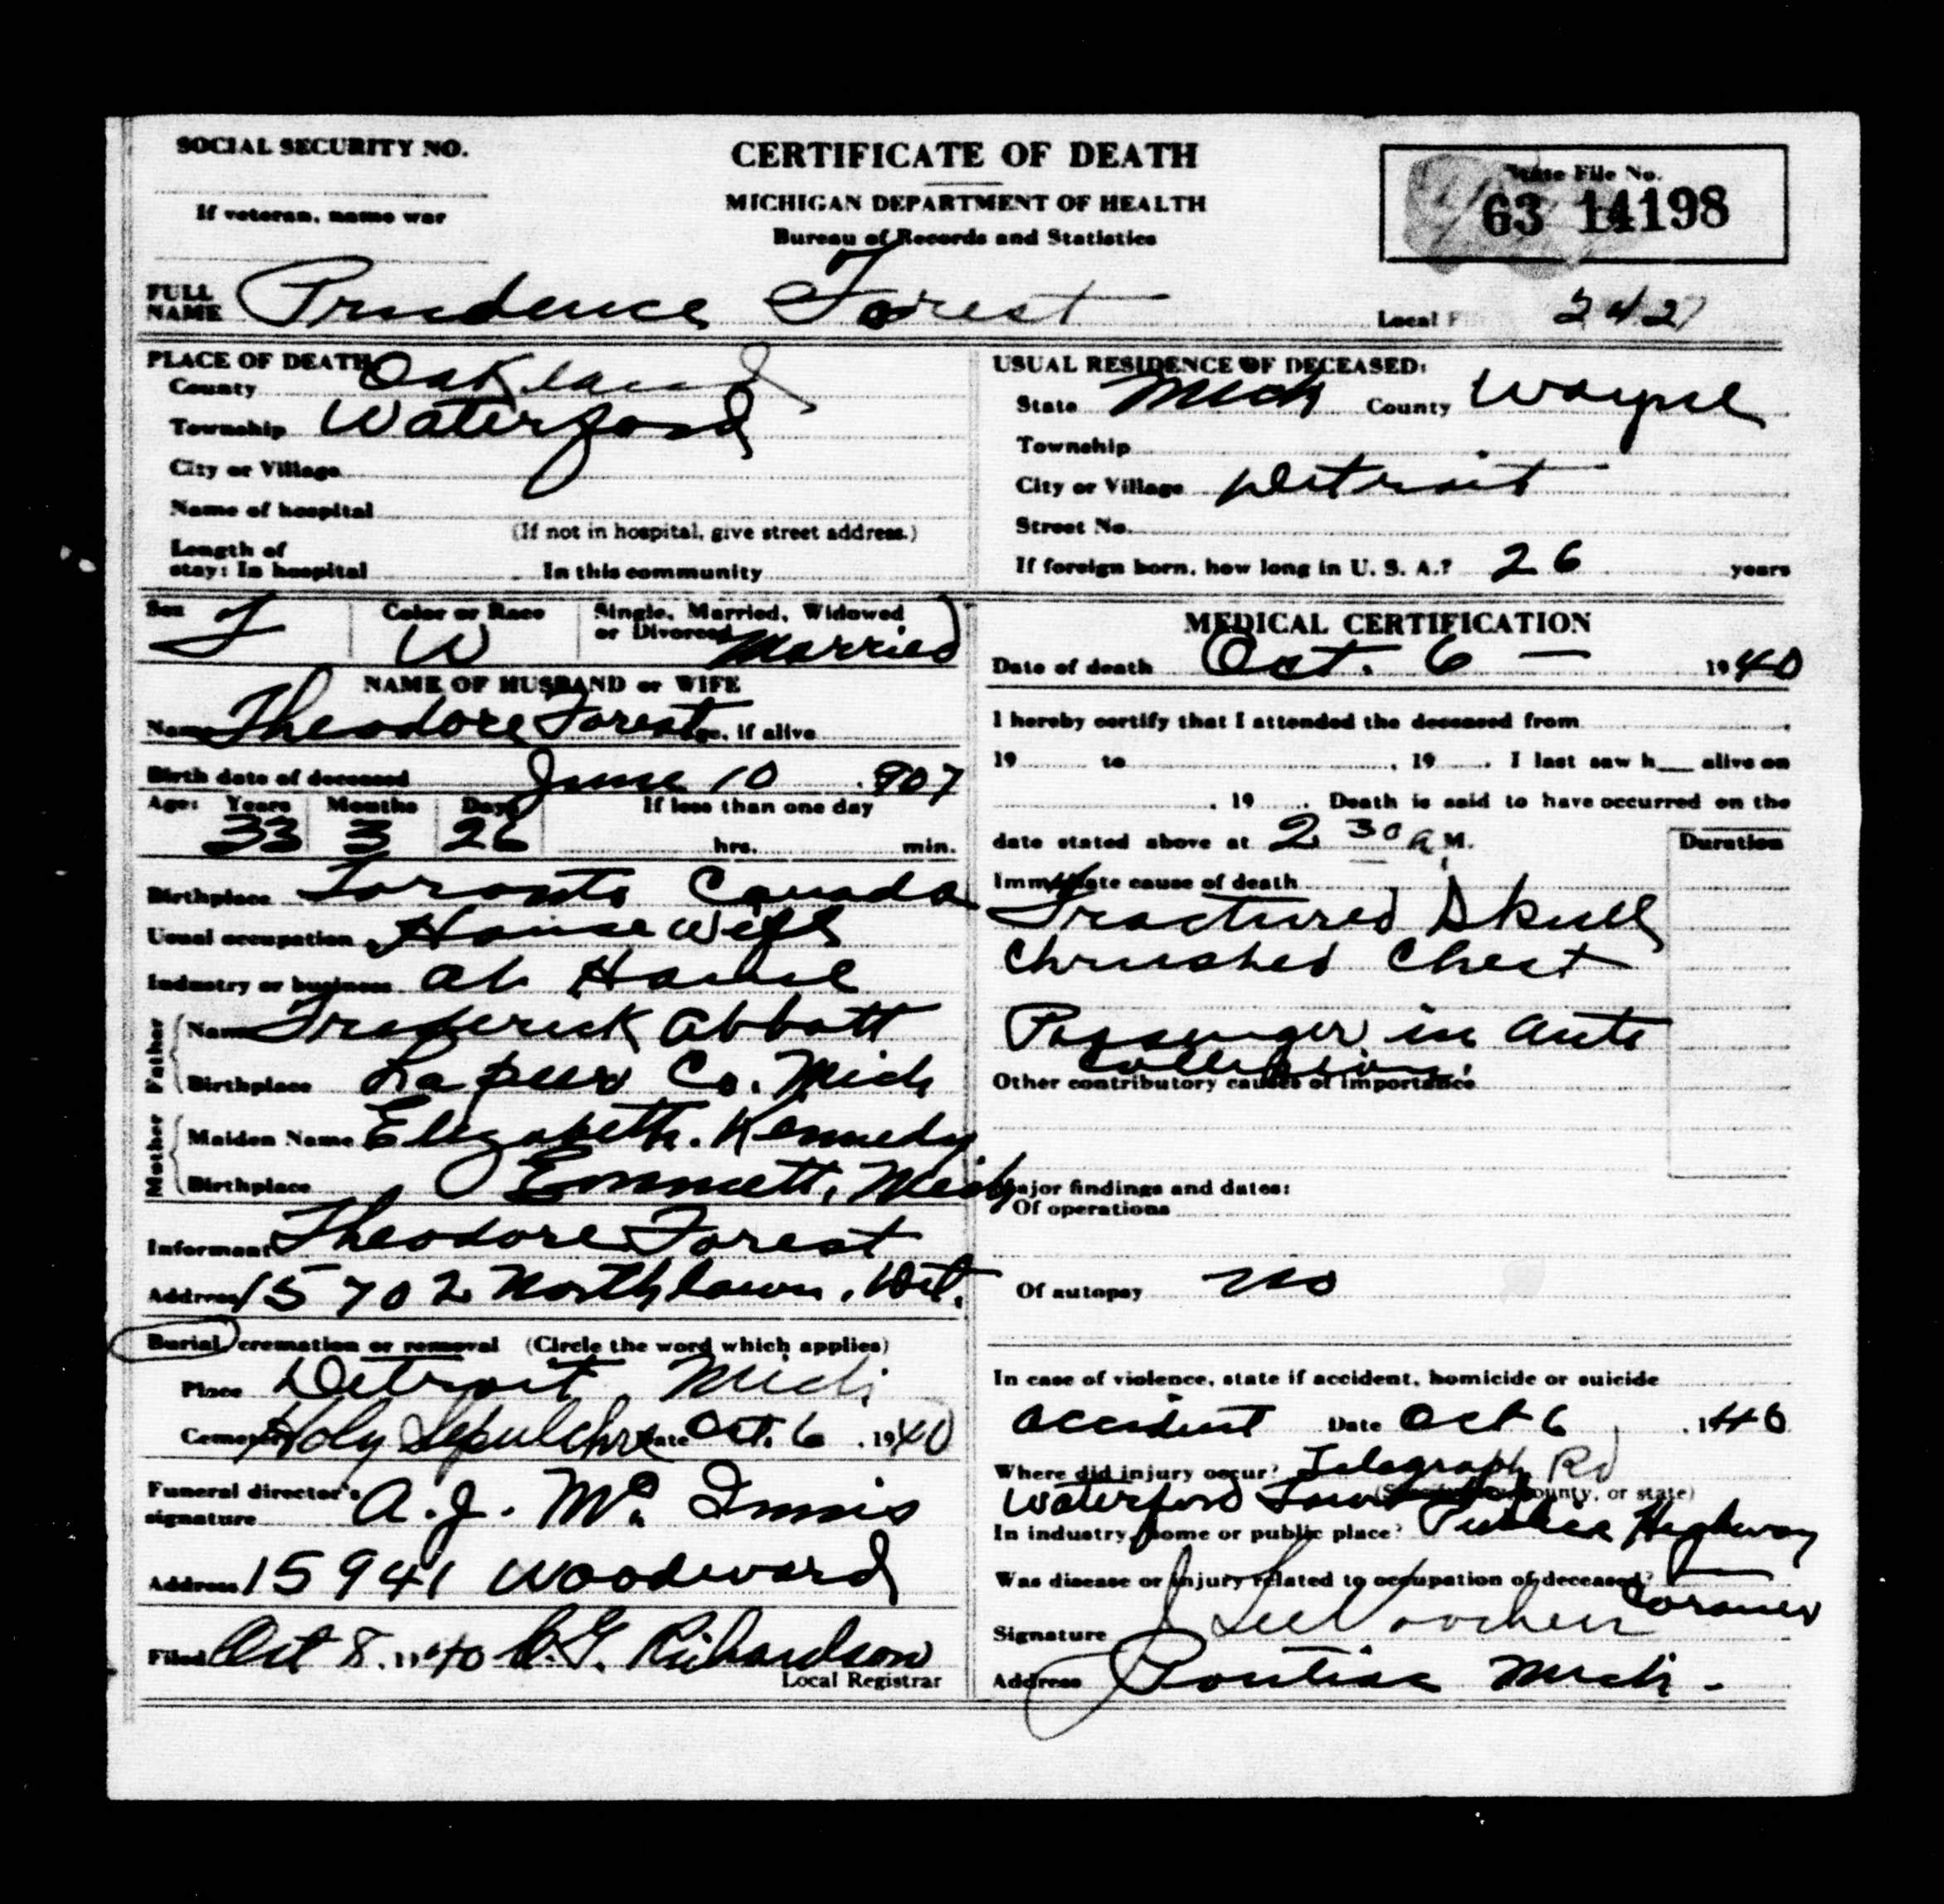 SOCIAL SECURITY NO.
If veteran, name war
CERTIFICATE OF DEATH
MICHIGAN DEPARTMENT OF HEALTH
Bureau of Records and Statistics
State File No.
63 14198
FULL NAME Prudence Forest
Local 2427
PLACE OF DEATH
County Oakland
Township Waterford
City or Village
Name of hospital
(If not in hospital, give street address.)
Length of
stay: In hospital In this community
USUAL RESIDENCE OF DECEASED:
State Mich County Wayne
Township
City or Village Detroit
Street No.
If foreign born, how long in U. S. A.? 26 years
Sex F Color or Race W Single, Married, Widowed
or Divorced Married
NAME OF HUSBAND or WIFE
Name Theodore Forest Age, if alive
Birth date of deceased June 10 1907
Age: Years Months Days If less than one day
33 3 26 hrs. min.
Birthplace Toronto Canada
Usual occupation House Wife
Industry or business at Home
Father
Name Frederick Abbott
Birthplace Lapeer Co. Mich
Mother
Maiden Name Elizabeth. Kennedy
Birthplace Emmett, Mich
Informant Theodore Forest
Address 15702 Northlawn. Det.
Burial cremation or removal (Circle the word which applies)
Place Detroit, Mich
Cemetery Holy Sepulchre Date Oct. 6 . 1940
Funeral director's
signature A. J. Mc Innis
Address 15941 Woodward
Filed Oct 8. 1940 Richardson
Local Registrar
MEDICAL CERTIFICATION
Date of death Oct. 6 — 1940
I hereby certify that I attended the deceased from ,
19 to , 19 . I last saw h alive on
, 19 . Death is said to have occurred on the
date stated above at 2 30 a M.
Duration
Immediate cause of death
Fractured Skull
Chrushed Chest
Passenger in auto
collission
Other contributory causes of importance
Major findings and dates:
Of operations
Of autopsy no
In case of violence, state if accident, homicide or suicide
accident Date Oct 6 , 1940
Where did injury occur? Telegraph Rd
Waterford Township county, or state)
In industry, home or public place? Public Highway
Was disease or injury related to occupation of deceased?
Coroner
Signature J Lee Voorhees
Address Pontiac Mich.